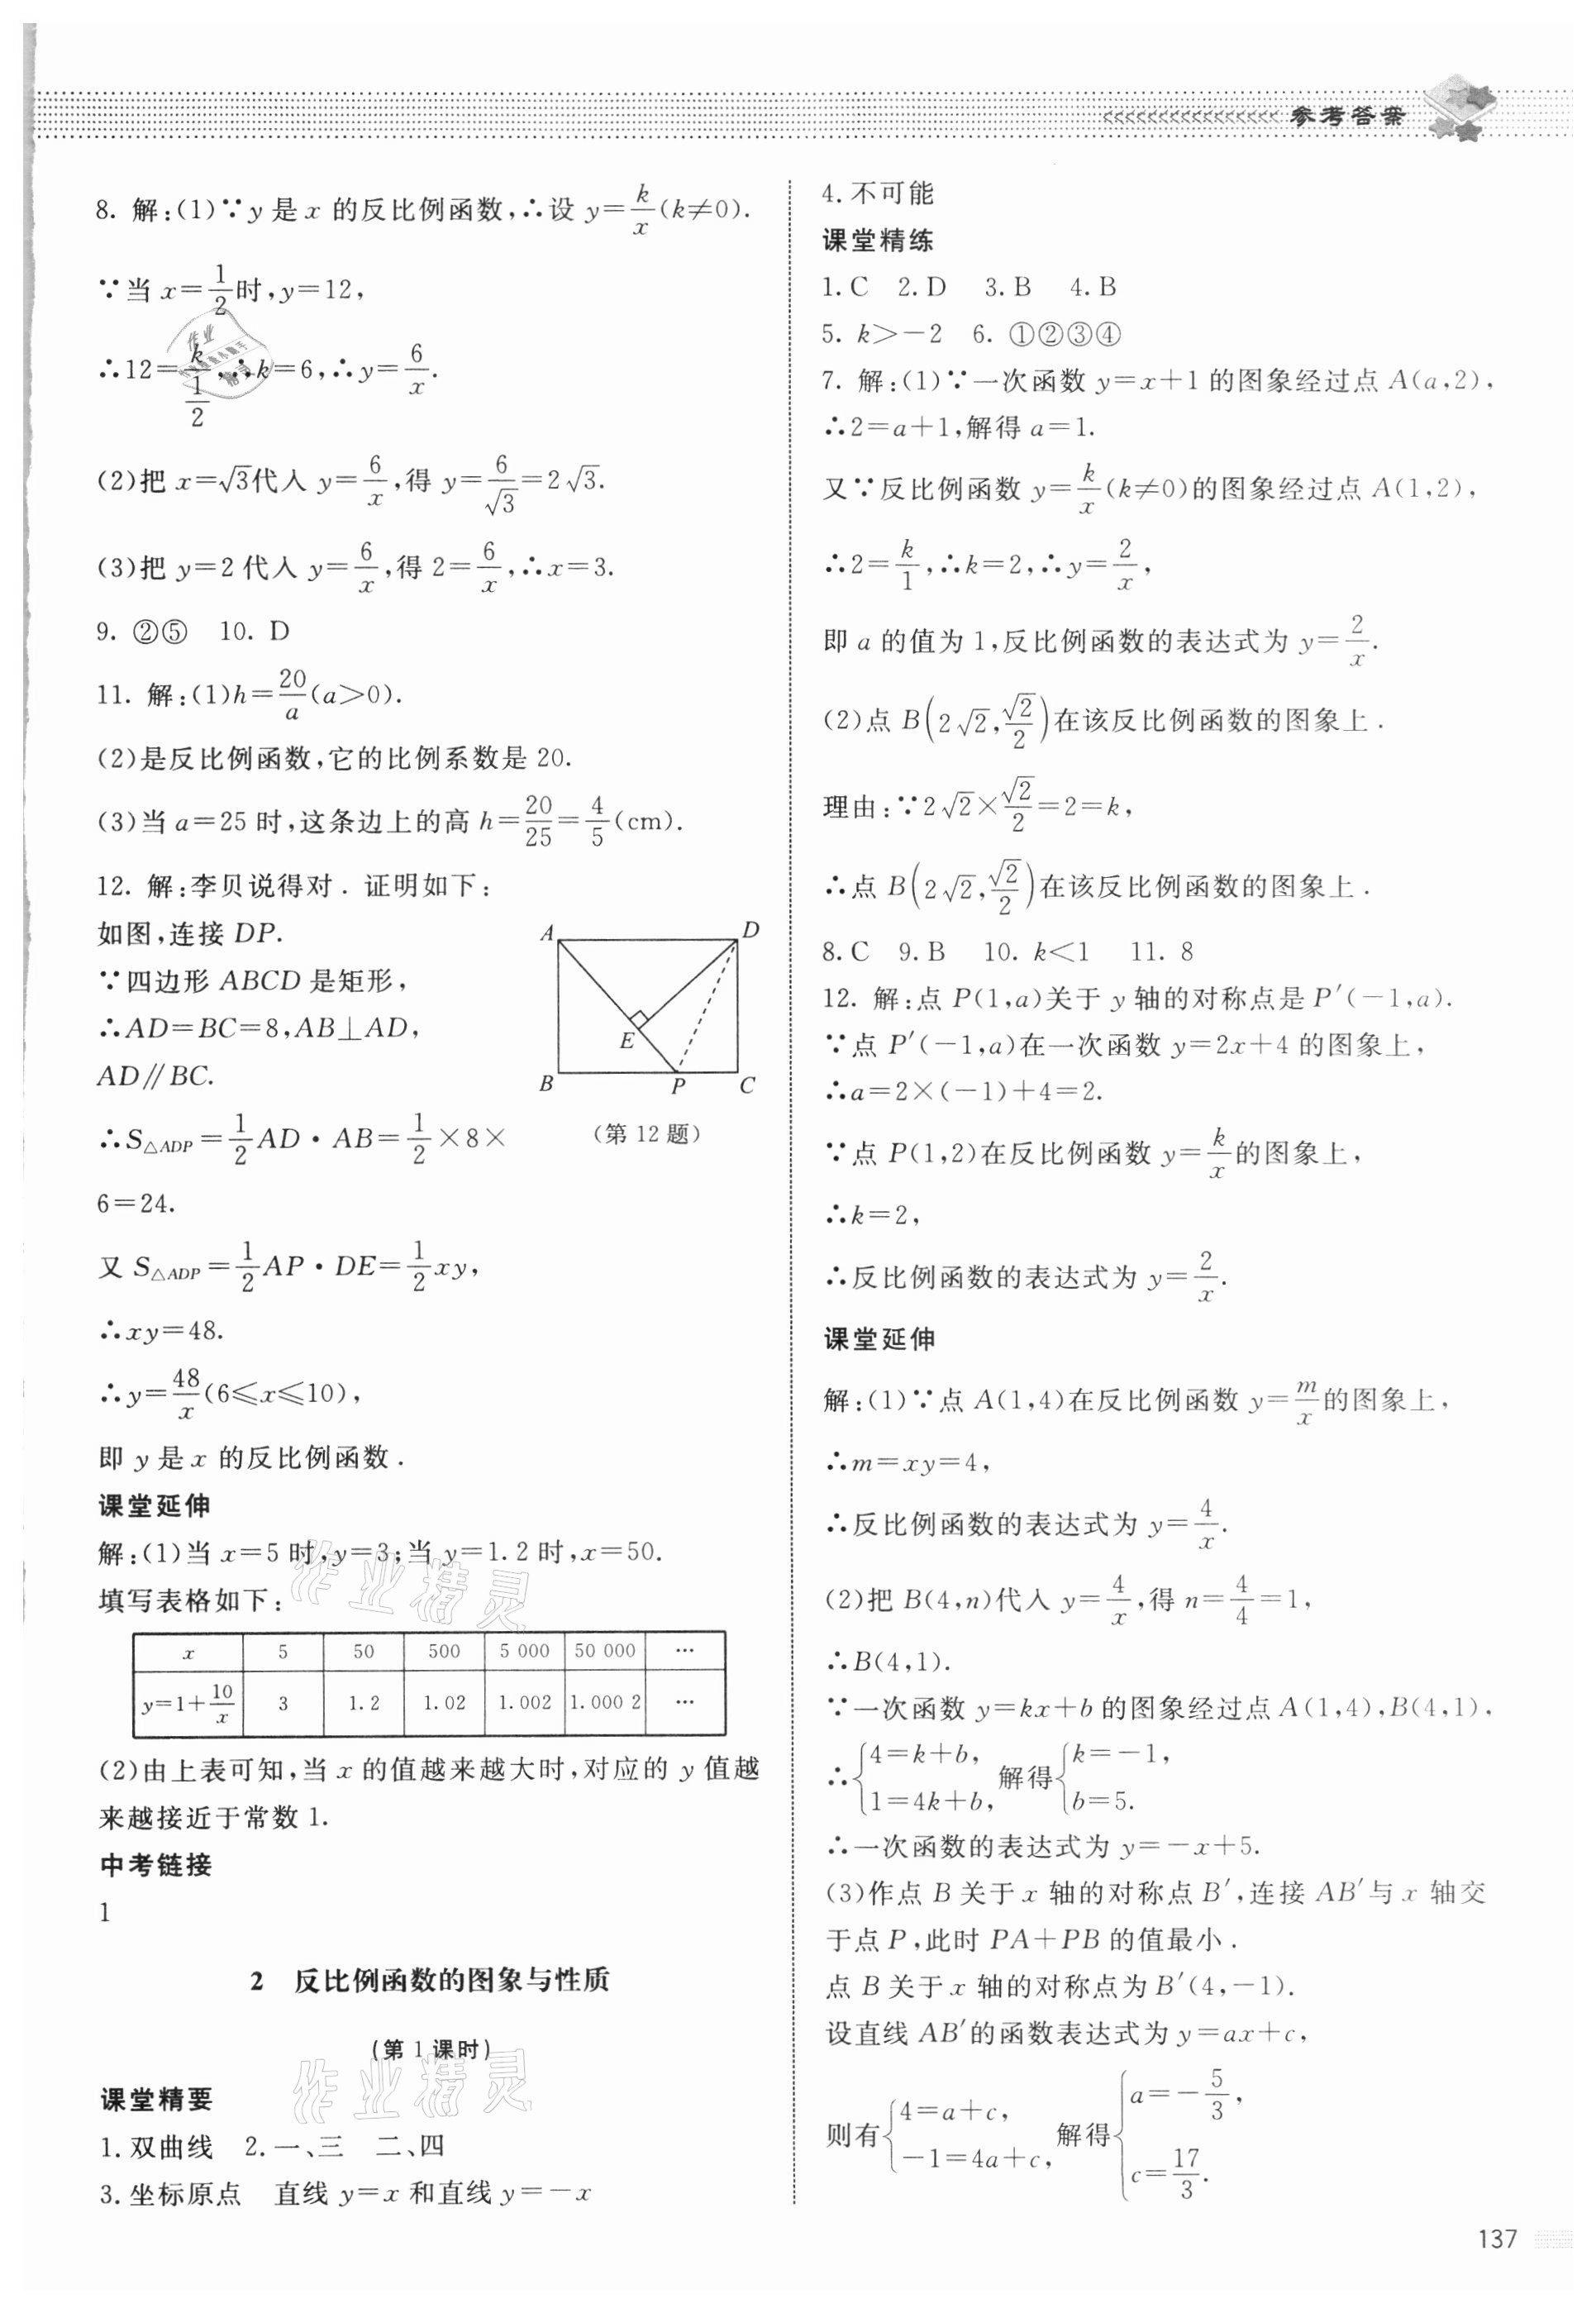 <<<<<<<<<<<<<<<< 参考答案
8. 解:(1)∵y 是 x 的反比例函数,∴设 y=k/x(k≠0).
∵当 x=1/2时,y=12,
∴12=k/(1/2),∴k=6,∴y=6/x.
(2)把 x=√3代入 y=6/x,得 y=6/√3=2√3.
(3)把 y=2 代入 y=6/x,得 2=6/x,∴x=3.
9. ②⑤ 10. D
11. 解:(1)h=20/a(a>0).
(2)是反比例函数,它的比例系数是 20.
(3)当 a=25 时,这条边上的高 h=20/25=4/5(cm).
12. 解:李贝说得对. 证明如下:
如图,连接 DP.
∵四边形 ABCD 是矩形,
∴AD=BC=8,AB⊥AD,
AD∥BC.
A D
E
B P C
(第 12 题)
∴S△ADP=1/2AD·AB=1/2×8×
6=24.
又 S△ADP=1/2AP·DE=1/2xy,
∴xy=48.
∴y=48/x(6≤x≤10),
即 y 是 x 的反比例函数.
课堂延伸
解:(1)当 x=5 时,y=3;当 y=1.2 时,x=50.
填写表格如下:
x 5 50 500 5 000 50 000 …
y=1+10/x 3 1.2 1.02 1.002 1.000 2 …
(2)由上表可知,当 x 的值越来越大时,对应的 y 值越
来越接近于常数 1.
中考链接
1
2 反比例函数的图象与性质
(第 1 课时)
课堂精要
1. 双曲线 2. 一、三 二、四
3. 坐标原点 直线 y=x 和直线 y=-x
4. 不可能
课堂精练
1. C 2. D 3. B 4. B
5. k>-2 6. ①②③④
7. 解:(1)∵一次函数 y=x+1 的图象经过点 A(a,2),
∴2=a+1,解得 a=1.
又∵反比例函数 y=k/x(k≠0)的图象经过点 A(1,2),
∴2=k/1,∴k=2,∴y=2/x,
即 a 的值为 1,反比例函数的表达式为 y=2/x.
(2)点 B(2√2,√2/2)在该反比例函数的图象上.
理由:∵2√2×√2/2=2=k,
∴点 B(2√2,√2/2)在该反比例函数的图象上.
8. C 9. B 10. k<1 11. 8
12. 解:点 P(1,a)关于 y 轴的对称点是 P′(-1,a).
∵点 P′(-1,a)在一次函数 y=2x+4 的图象上,
∴a=2×(-1)+4=2.
∵点 P(1,2)在反比例函数 y=k/x的图象上,
∴k=2,
∴反比例函数的表达式为 y=2/x.
课堂延伸
解:(1)∵点 A(1,4)在反比例函数 y=m/x的图象上,
∴m=xy=4,
∴反比例函数的表达式为 y=4/x.
(2)把 B(4,n)代入 y=4/x,得 n=4/4=1,
∴B(4,1).
∵一次函数 y=kx+b 的图象经过点 A(1,4),B(4,1),
∴{4=k+b, 1=4k+b, 解得{k=-1, b=5.
∴一次函数的表达式为 y=-x+5.
(3)作点 B 关于 x 轴的对称点 B′,连接 AB′与 x 轴交
于点 P,此时 PA+PB 的值最小.
点 B 关于 x 轴的对称点为 B′(4,-1).
设直线 AB′的函数表达式为 y=ax+c,
则有{4=a+c, -1=4a+c, 解得{a=-5/3, c=17/3.
137
作业精灵
作业精灵